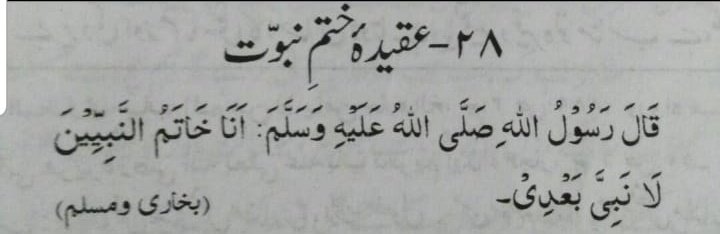 ۲۸-عقیدۂ ختمِ نبوّت
قَالَ رَسُوْلُ اللهِ صَلَّى اللهُ عَلَيْهِ وَسَلَّمَ: اَنَا خَاتَمُ النَّبِيِّيْنَ
لَا نَبِىَّ بَعْدِىْ۔ (بخاری ومسلم)